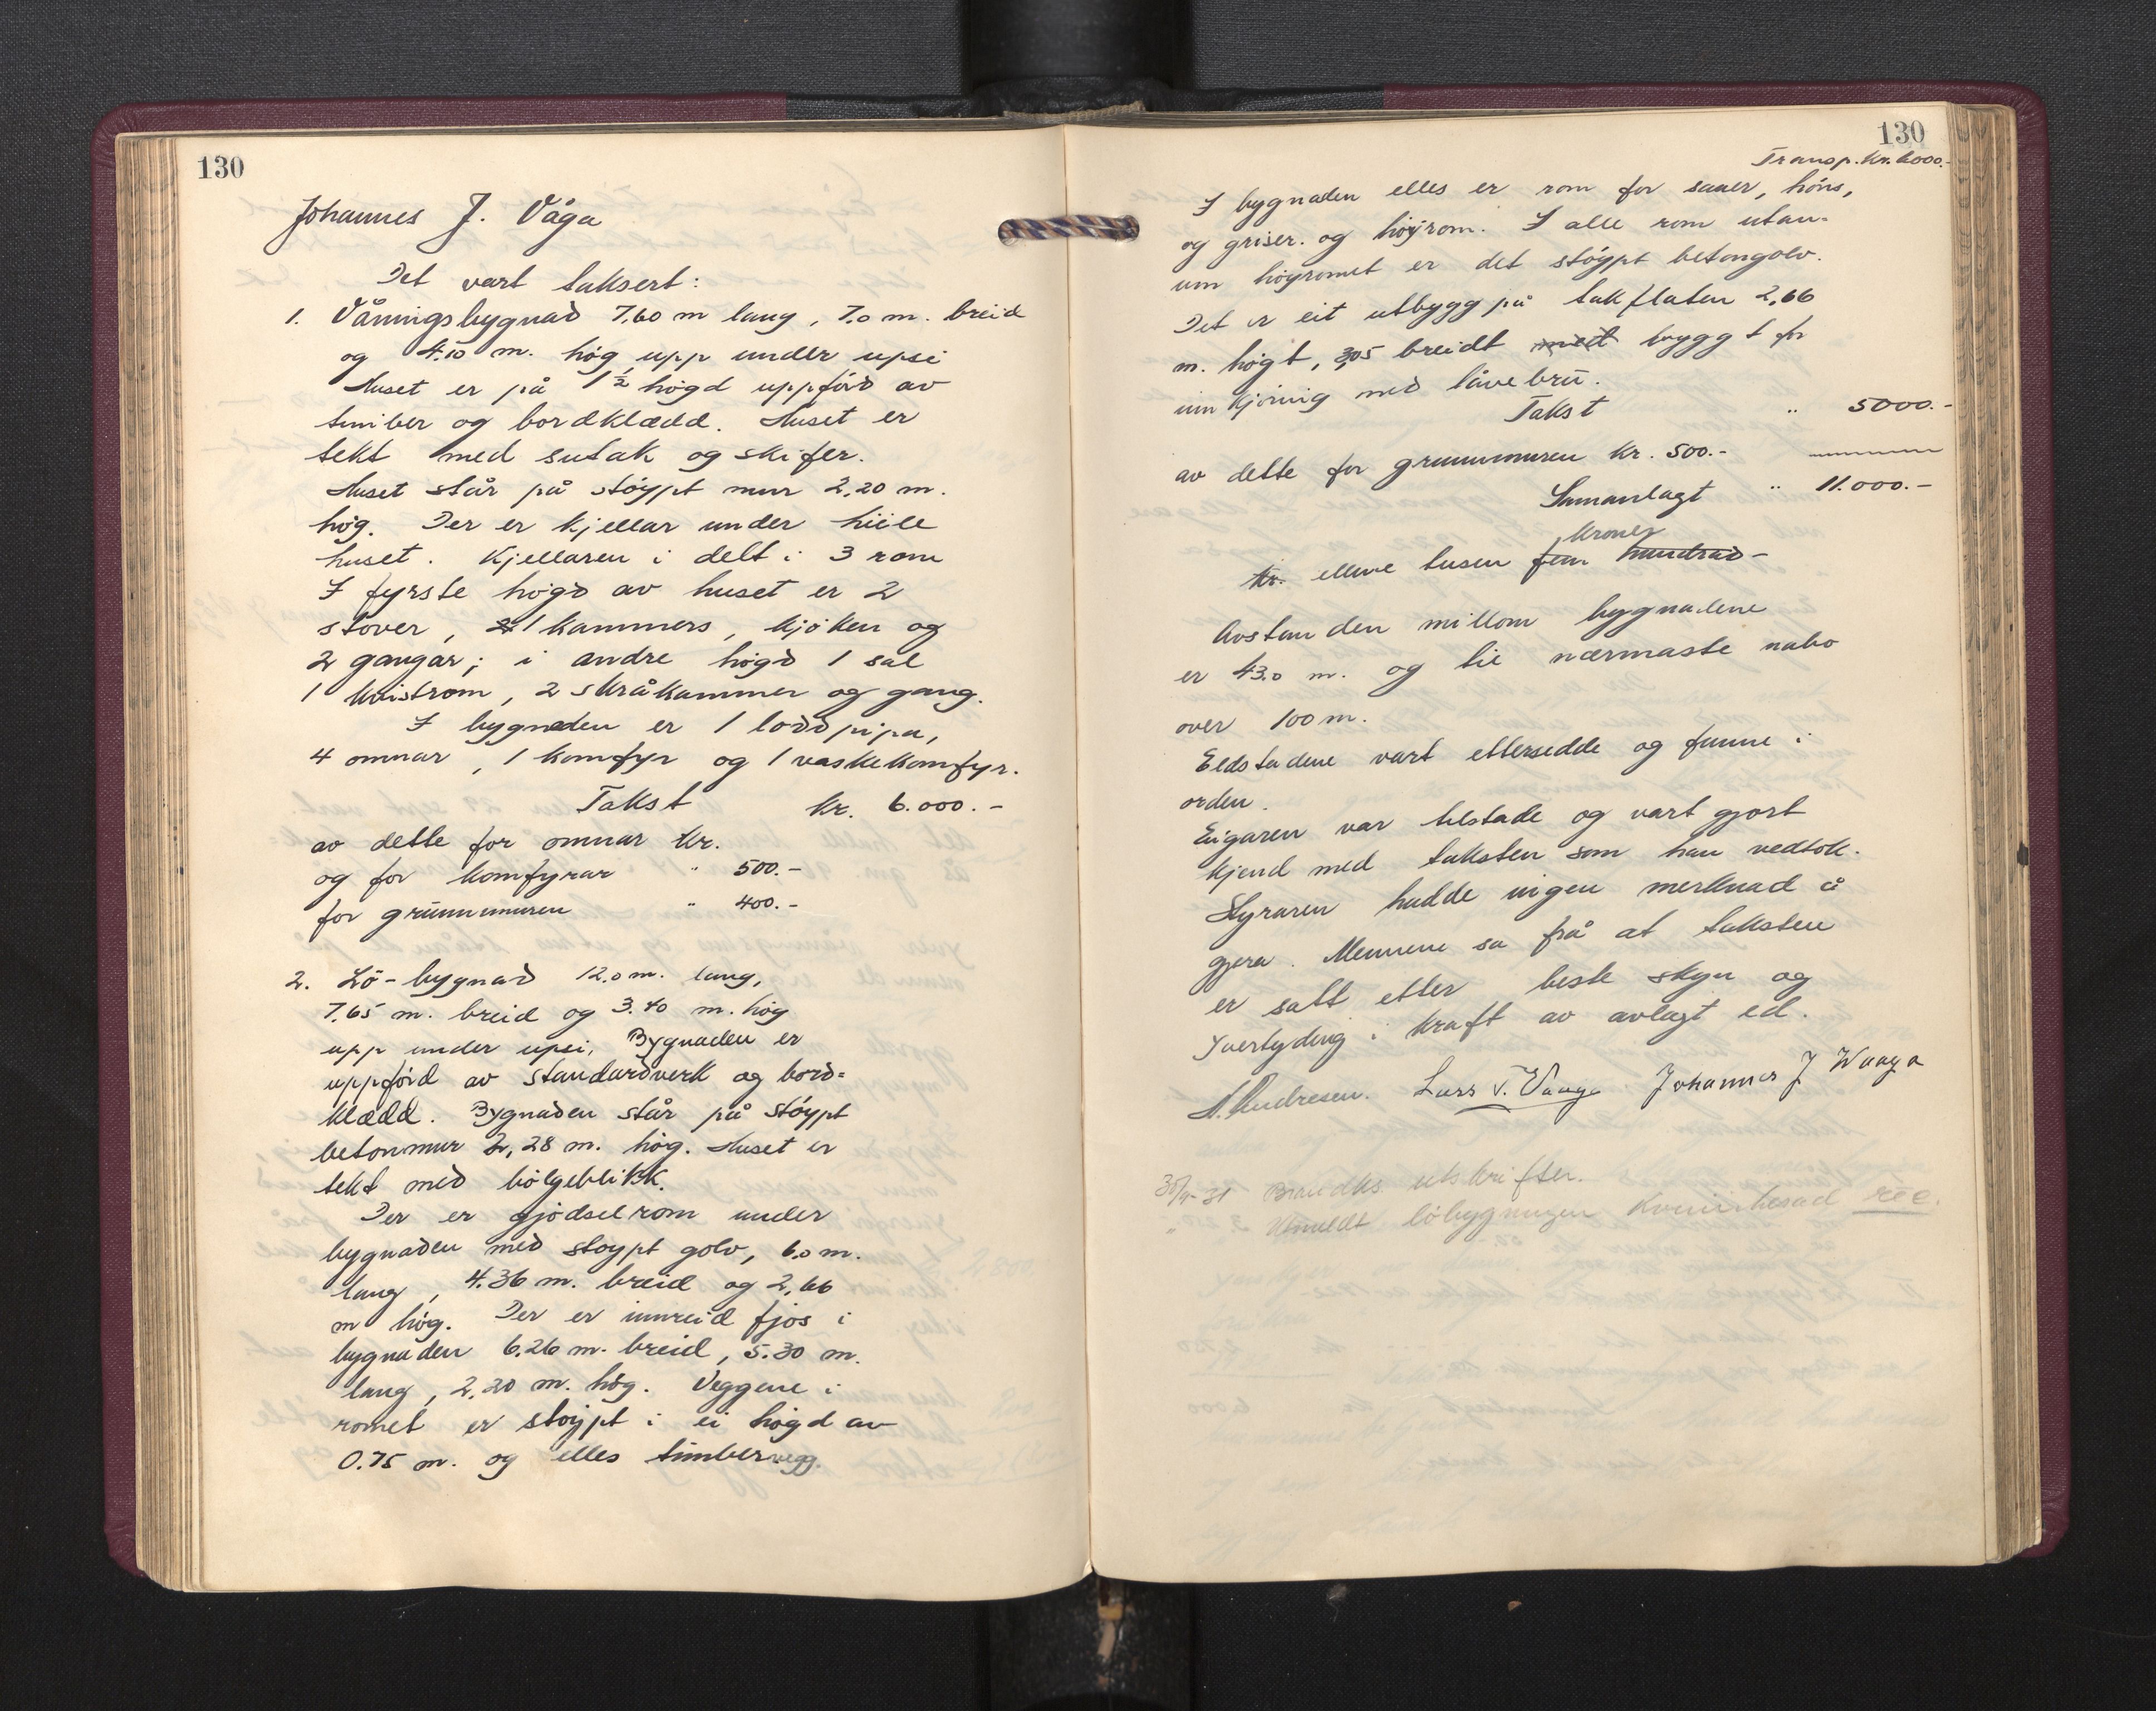 130
Johannes J. Våga
Det vart taksert:
1. Våningsbygnad 7,60 m lang, 7.0 m. breid
og 4.10 m. høg upp under upsi
Huset er på 1½ høgd uppførd av
timber og bordklædd. Huset er
tekt med sutak og skifer.
Huset står på støypt mur 2,20 m.
høg. Der er kjellar under heile
huset. Kjellaren i delt i 3 rom
I fyrste høgd av huset er 2
stover, 1 kammers, kjøken og
2 gangar; i andre høgd 1 sal
1 kvistrom, 2 skråkammer og gang.
I bygnaden er 1 loddpipa,
4 omnar, 1 komfyr og 1 vaskekomfyr.
Takst kr. 6.000.-
av dette for omnar kr.
og for komfyrar " 500.-
for grunnmuren " 400.-
2. Lö-bygnad 12.0 m. lang,
7.65 m. breid og 3.40 m. høg
upp under upsi, Bygnaden er
uppførd av standardverk og bord-
klædd. Bygnaden står på støypt
betonmur 2,28 m. høg. Huset er
tekt med bølgeblikk.
Der er gjødselrom under
bygnaden med støypt golv, 6.0 m.
lang, 4.36 m. breid og 2,66
m høg. Der er innreid fjos i
bygnaden 6.26 m. breid, 5.30 m.
lang, 2,20 m. høg. Veggene i
romet er støypt i ei høgd av
0.75 m. og elles timbervegg.
130
Transp. kr. 6000.-
I bygnaden elles er rom for sauer, høns,
og griser. og høyrom. I alle rom utan-
um høyromet er det støypt betongolv.
Det er eit utbygg på takflaten 2,66
m. høgt, 3,05 breidt med byggt for
innkjøring med låvebru.
Takst " 5000.-
av dette for grunnmuren kr. 500.-
Samanlagt " 11.000.-
kroner
kr. elleve tusen fem hundrad -
Avstanden millom bygnadene
er 43.0 m. og til nærmaste nabo
over 100 m.
Eldstadene vart ettersedde og funne i
orden.
Eigaren var tilstade og vart gjort
kjend med taksten som han vedtok.
Styraren hadde ingen merknad å
gjera. Mennene sa frå at taksten
er satt etter beste skyn og
yvertyding i kraft av avlagt ed.
A. Andresen. Lars T. Vaage Johannes J Waaga
30/4-31 Brandks utskrifter.
" Utmeldt løbygningen